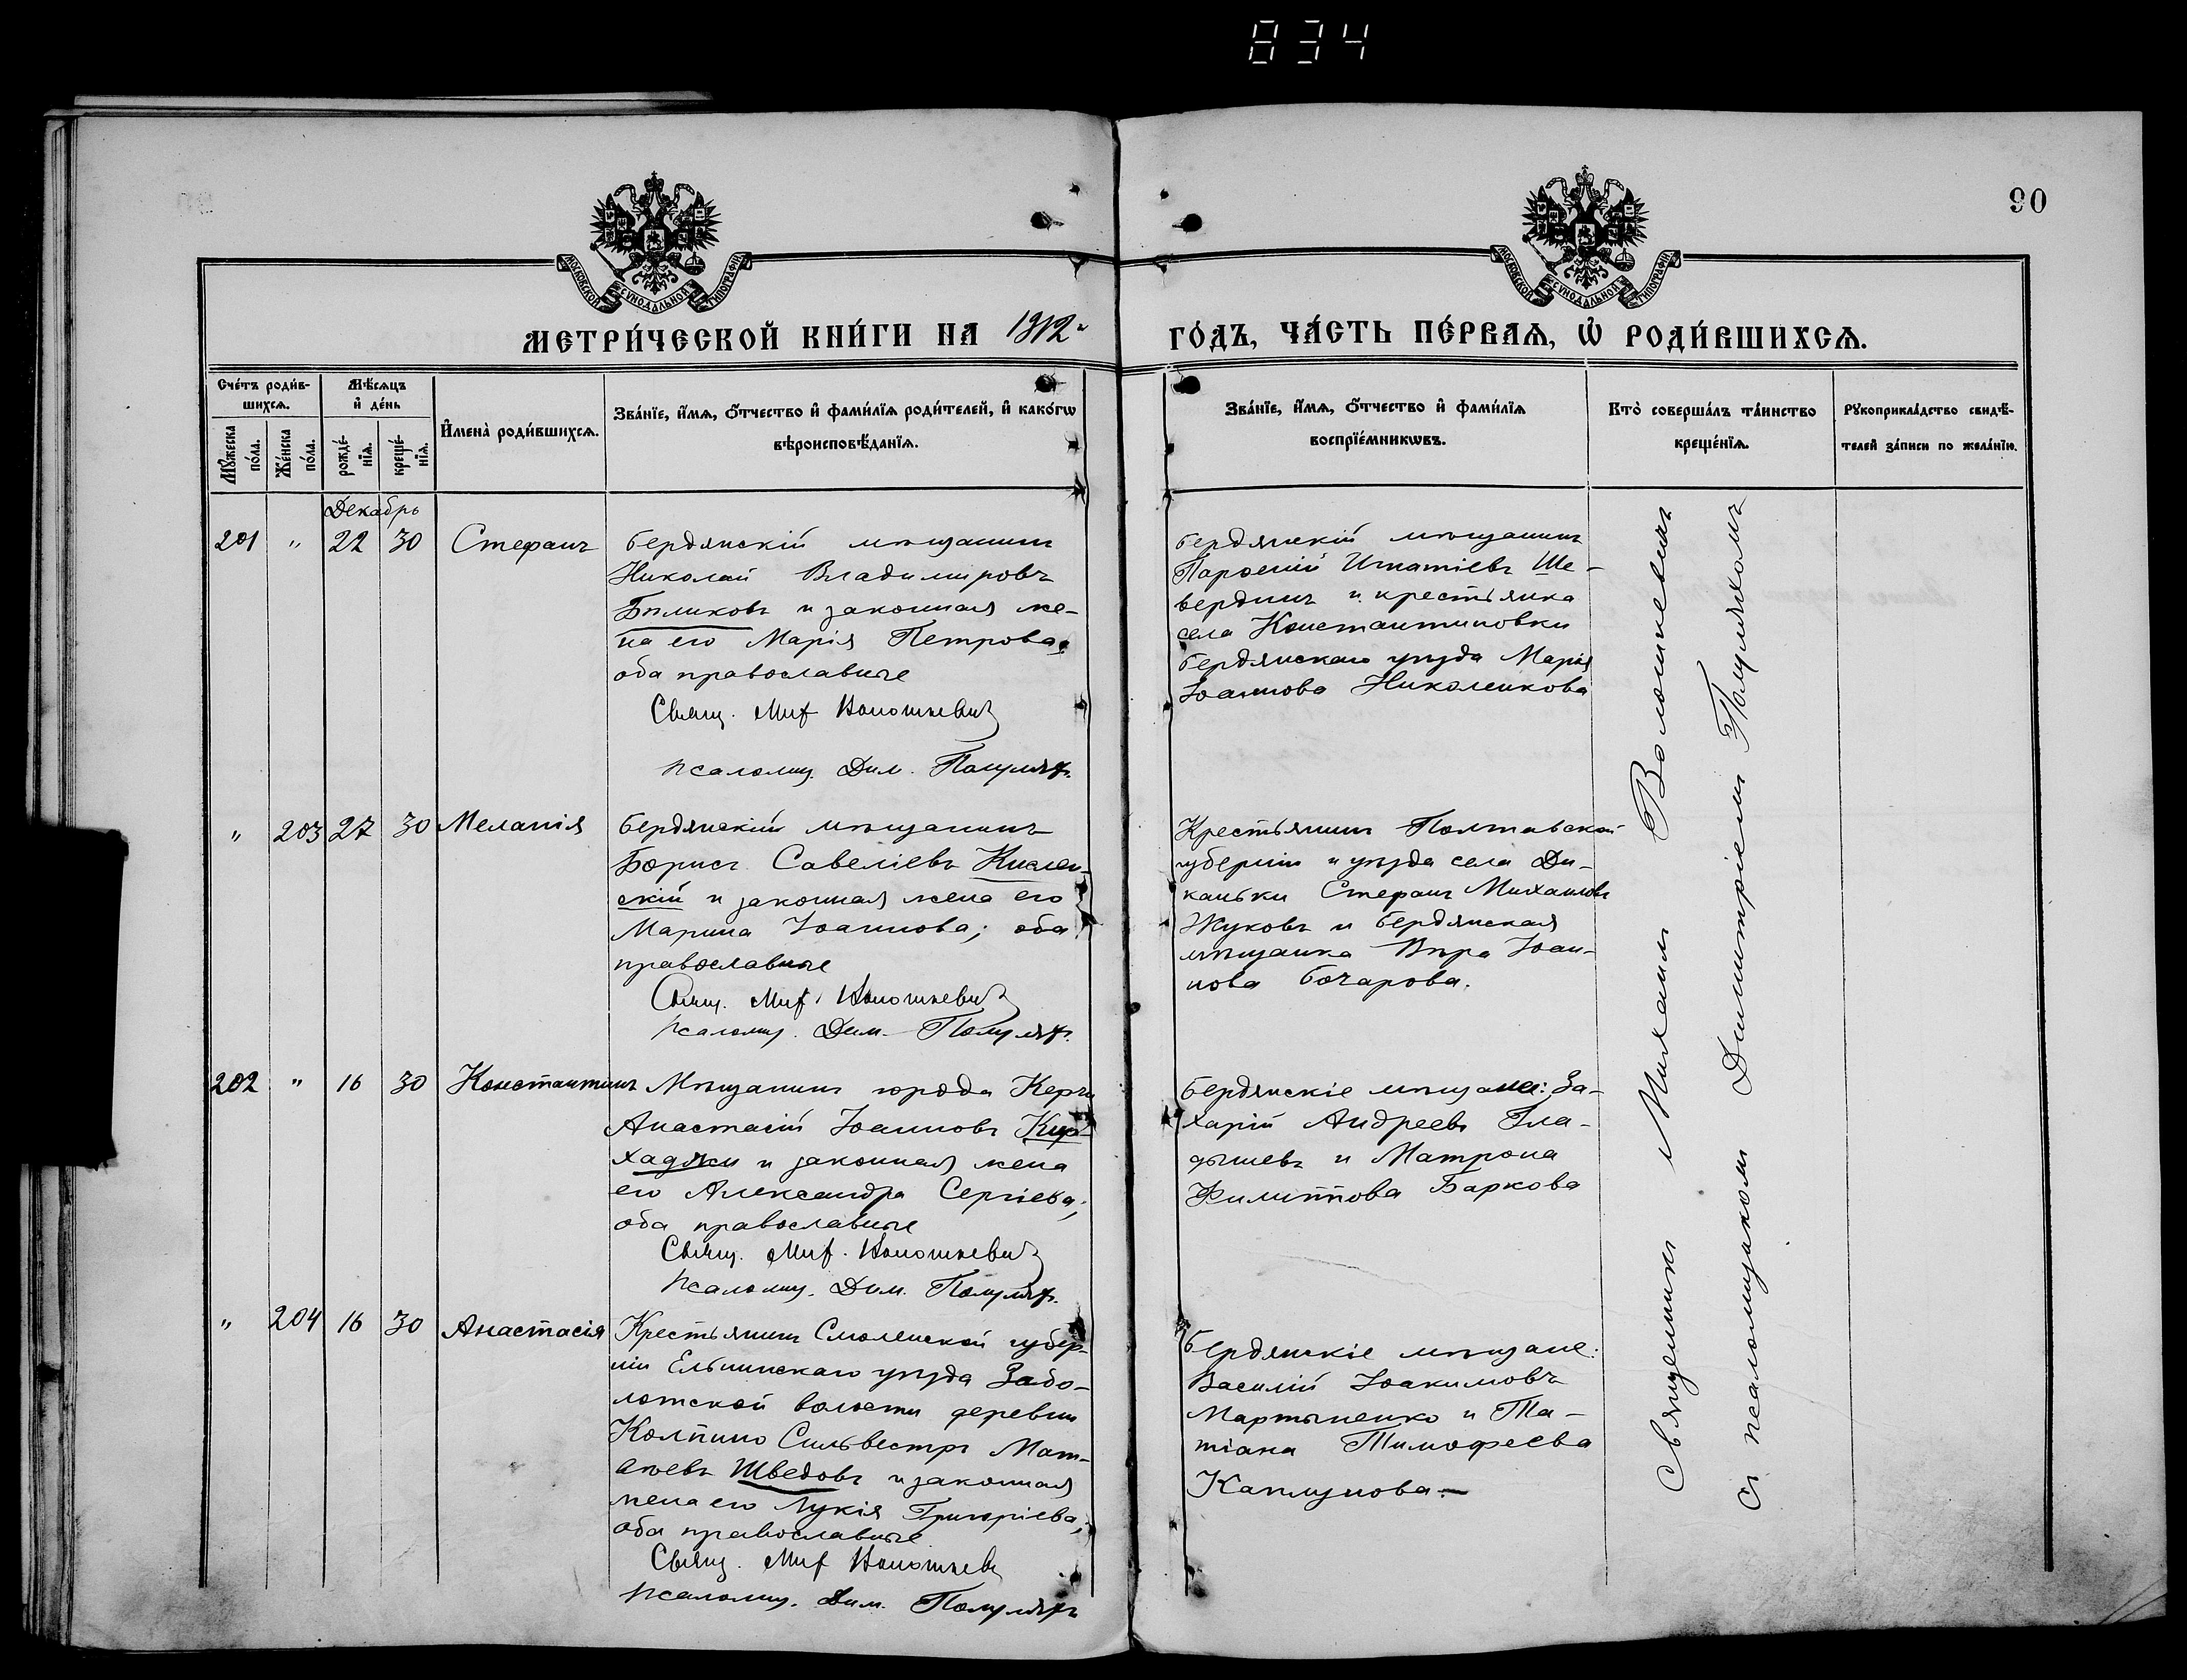 834
90
МОСКОВСКОЙ СѴНОДАЛЬНОЙ ТИПОГРАФІИ
МОСКОВСКОЙ СѴНОДАЛЬНОЙ ТИПОГРАФІИ
МЕТРИ́ЧЕСКОЙ КНИ́ГИ НА 1912 ГО́ДЪ, ЧА́СТЬ ПЕ́РВАЯ, Ѡ҆ РОДИ́ВШИХСЯ.
Сче́тъ роди́в-
шихсѧ.
Мѣ́сѧцъ
и҆ де́нь
Мꙋ́жеска
по́ла.
Же́нска
по́ла.
рожде́-
нїѧ.
креще́-
нїѧ.
И҆мена̀ роди́вшихсѧ.
Зва́нїе, и҆́мѧ, ѻ҆́тчество и҆ фами́лїѧ роди́телей, и҆ како́гѡ
вѣроисповѣ́данїѧ.
Зва́нїе, и҆́мѧ, ѻ҆́тчество и҆ фами́лїѧ
воспрїе́мникѡвъ.
Кто̀ соверша́лъ та́инство
креще́нїѧ.
Рꙋкоприкла́дство свидѣ́-
телей за́писи по жела́нїю.
Декабрь
201 " 22 30 Стефанъ
Бердянскій мѣщанинъ
Николай Владимировъ
Бѣликовъ и законная же-
на его Марія Петрова
оба православные
Свящ. Мих Волошкевич
псаломщ. Дим. Полулях.
Бердянскій мѣщанинъ
Парѳеній Игнатіевъ Ше-
вердинъ и крестьянка
села Константиновки
Бердянскаго уѣзда Марія
Іоаннова Николенкова
" 203 27 30 Меланія
Бердянскій мѣщанинъ
Борисъ Савеліевъ Кислен-
скій и законная жена его
Марина Іоаннова; оба
православные
Свящ. Мих. Волошкевич
псаломщ. Дим. Полулях.
Крестьянинъ Полтавской
губерніи и уѣзда села Ди-
каньки Стефанъ Михаиловъ
Жуковъ и Бердянская
мѣщанка Вѣра Іоан-
нова Бочарова.
202 " 16 30 Константинъ
Мѣщанинъ города Керчи
Анастасій Іоанновъ Кир-
хаджи и законная жена
его Александра Сергіева;
оба православные
Свящ. Мих. Волошкевич
псаломщ. Дим. Полулях.
Бердянскіе мѣщане: За-
харій Андреевъ Гла-
дышевъ и Матрона
Филиппова Баркова
" 204 16 30 Анастасія
Крестьянинъ Смоленской губер-
ніи Ельнинскаго уѣзда Забо-
лотской волости деревни
Колпино Сильвестръ Мат-
ѳеевъ Шведовъ и законная
жена его Лукія Григоріева,
оба православные
Свящ. Мих Волошкевич
псаломщ. Дим. Полуляхъ
Бердянскіе мѣщане:
Василій Іоакимовъ
Мартыненко и Та-
тіана Тимофеева
Каплунова.
Священникъ Михаилъ Волошкевичъ
съ псаломщикомъ Димитріемъ Полуляхомъ